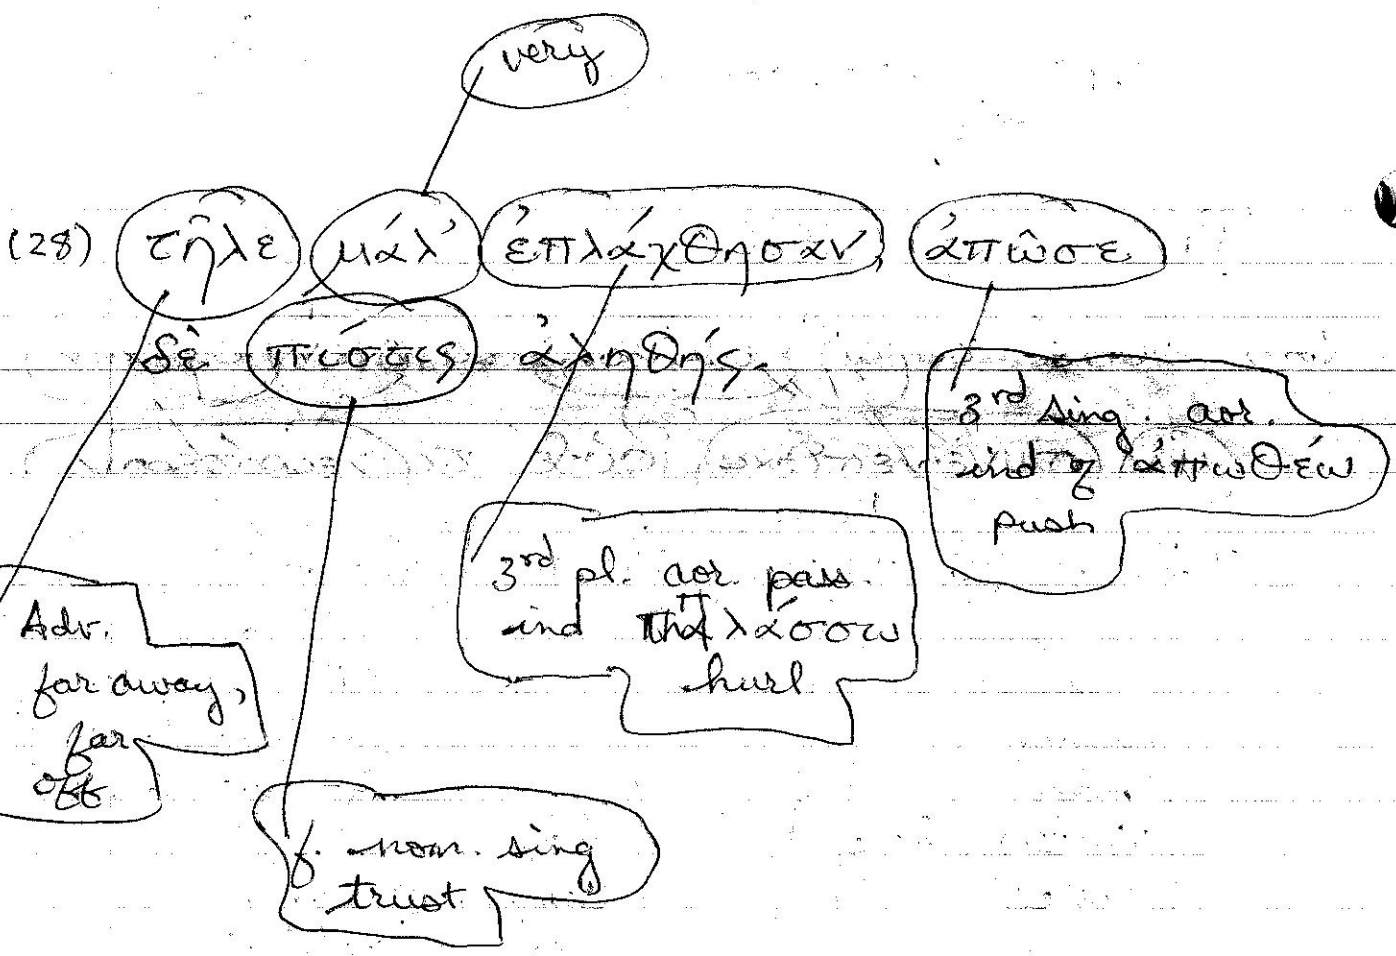 very
(28) τῆλε μάλ' ἐπλάχθησαν, ἀπῶσε
δὲ πίστις ἀληθής.
3rd sing. aor.
ind of ἀπωθέω
push
3rd pl. aor. pass.
ind λάσσω
hurl
Adv.
far away,
far
off
f. nom. sing
trust